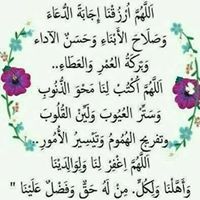 اَللَّهُمَّ اُرْزُقْنَا إِجَابَةَ الدُّعَاءِ
وَصَلَاحَ الأَبْنَاءِ وَحُسْنَ الآدَاء
وَبَرَكَةُ العُمْرِ وَالعَطَاءِ..
اَللَّهُمَّ اُكْتُبْ لِنَا مَحْوَ الذُّنُوبِ
وَسَتْرُ العُيُوبَ وَلَيِّنْ القُلُوبَ
وتفريج الهُمُومُ وَتَيْسِيرُ الأُمُورِ..
اَللَّهُمَّ اِغْفِرْ لِنَا وَلِوَالِدَيْنَا
وَأَهْلَنَا وَلِكُلِّ. مِنْ لَهُ حَقٌّ وَفَضْلٌ عَلَيْنَا "